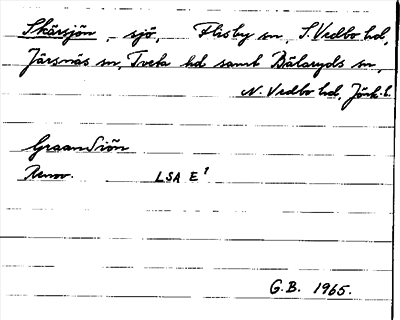 Skärsjön, sjö, Flisby sn, S. Vedbo hd,
Järsnäs sn, Tveta hd samt Bälaryds sn,
N. Vedbo hd, Jönk. l.
Graan Siön
Renov. LSA E¹
G.B. 1965.